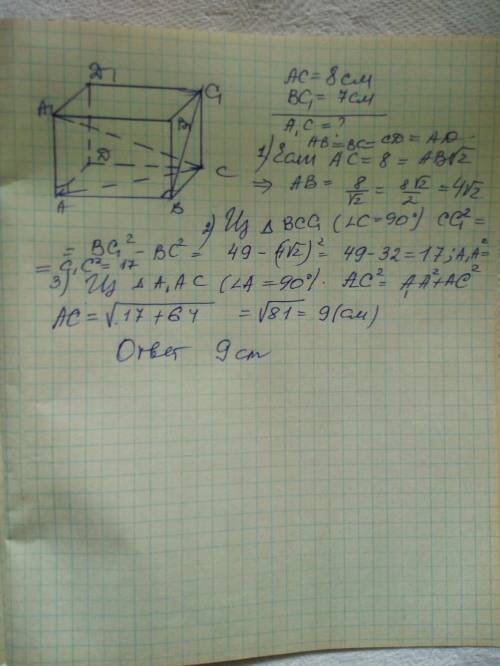 D1
C1
A1
B1
D
C
A
B
AC = 8 см
BC1 = 7 см
A1C = ?
AB = BC = CD = AD
1) Если AC = 8 = AB√2
⇒ AB = 8/√2 = 8√2/2 = 4√2
2) Из Δ BCC1 (∠C=90°) CC1² =
= BC1² - BC² = 49 - (4√2)² = 49 - 32 = 17; A1A² =
= C1C² = 17
3) Из Δ A1AC (∠A = 90°). A1C² = A1A² + AC²
AC = √17 + 64 = √81 = 9 (см)
Ответ 9 см